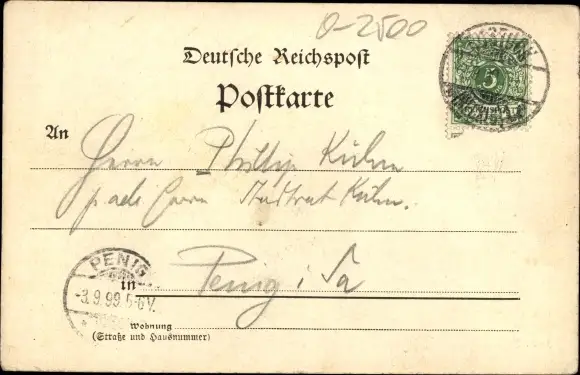 0-2500
Deutsche Reichspost
Postkarte
5
An
Herrn Phillip Kühn
p. adr. Herrn Stadtrat Kühn.
PENIG
in Penig i/Sa
-3.9.99.5-6V.
Wohnung
(Straße und Hausnummer)